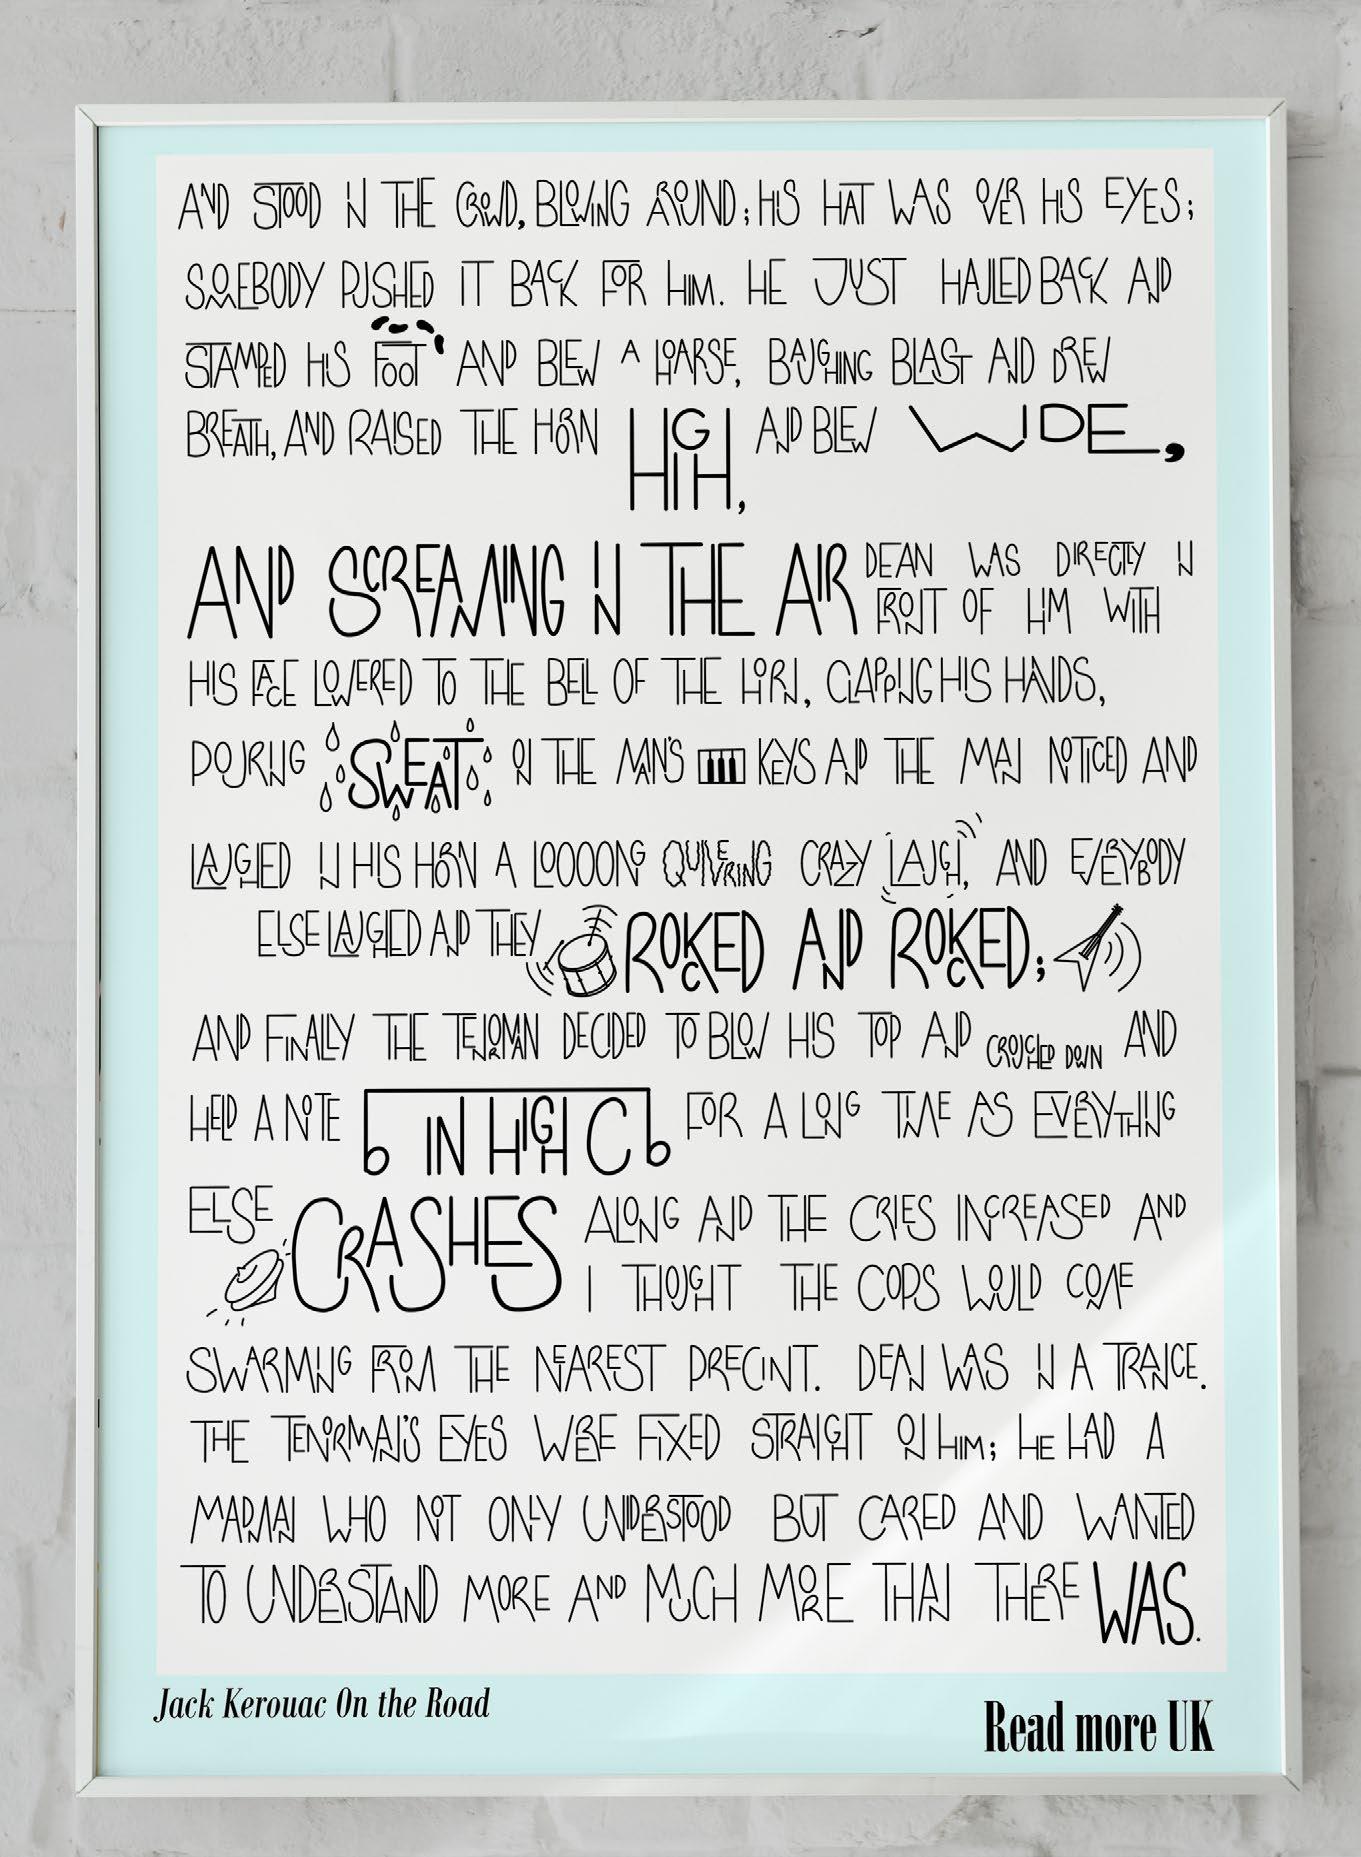 AND STOOD IN THE CROWD, BLOWING AROUND; HIS HAT WAS OVER HIS EYES;
SOMEBODY PUSHED IT BACK FOR HIM. HE JUST HAULED BACK AND
STAMPED HIS FOOT AND BLEW A HOARSE, BAUGHING BLAST AND DREW
BREATH, AND RAISED THE HORN HIGH, AND BLEW WIDE,
AND SCREAMING IN THE AIR DEAN WAS DIRECTLY IN
FRONT OF HIM WITH
HIS FACE LOWERED TO THE BELL OF THE HORN, CLAPPING HIS HANDS,
POURING SWEAT ON THE MAN'S KEYS AND THE MAN NOTICED AND
LAUGHED IN HIS HORN A LOOOONG QUIVERING CRAZY LAUGH, AND EVERYBODY
ELSE LAUGHED AND THEY ROCKED AND ROCKED;
AND FINALLY THE TENORMAN DECIDED TO BLOW HIS TOP AND CROUCHED DOWN AND
HELD A NOTE IN HIGH C FOR A LONG TIME AS EVERYTHING
ELSE CRASHES ALONG AND THE CRIES INCREASED AND
I THOUGHT THE COPS WOULD COME
SWARMING FROM THE NEAREST PRECINT. DEAN WAS IN A TRANCE.
THE TENORMAN'S EYES WERE FIXED STRAIGHT ON HIM; HE HAD A
MADMAN WHO NOT ONLY UNDERSTOOD BUT CARED AND WANTED
TO UNDERSTAND MORE AND MUCH MORE THAN THERE WAS.
Jack Kerouac On the Road
Read more UK